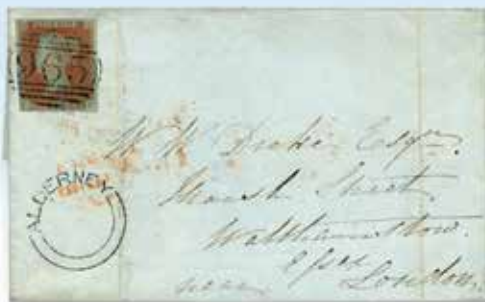 965
ALDERNEY
W. W. Drake Esqr.
Marsh Street,
Walthamstow.
Essex
near London.